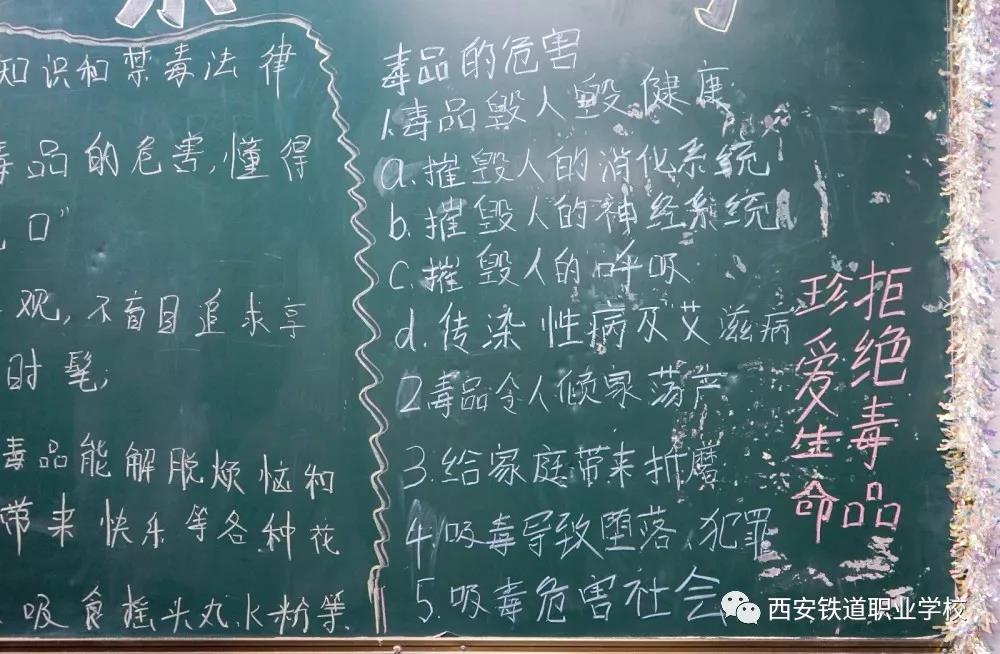 知识和禁毒法律
毒品的危害,懂得
口”
观,不盲目追求享
时髦;
毒品能解脱烦恼和
带来快乐等各种花
吸食摇头丸.K粉等
毒品的危害
1.毒品毁人毁健康
a.摧毁人的消化系统
b.摧毁人的神经系统
c.摧毁人的呼吸
d.传染性病及艾滋病
2毒品令人倾家荡产
3.给家庭带来折磨.
4.吸毒导致堕落、犯罪
5.吸毒危害社会
拒绝毒品
珍爱生命
西安铁道职业学校